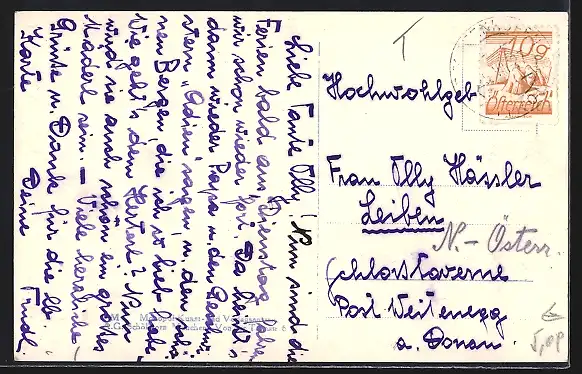 Liebe Tante Olly! Nun sind die
Ferien bald aus, Dienstag fahren
wir schon wieder fort. Da heißt's
dann wieder Papa u. den
"Adieu" sagen u. den
nen Bergen, die ich so lieb habe.
Wie geht's dem Herbert? Nun
wird sie auch schön ein großes
Maderl sein. – Viele herzliche
Grüße u. Danke für die lb.
Karte Deine Trudl.
Hochwohlgeb
Frau Olly Hässler
Leiben
N.-Österr.
Schlosstaverne
Post Weitenegg
a. Donau.
10g
Österreich